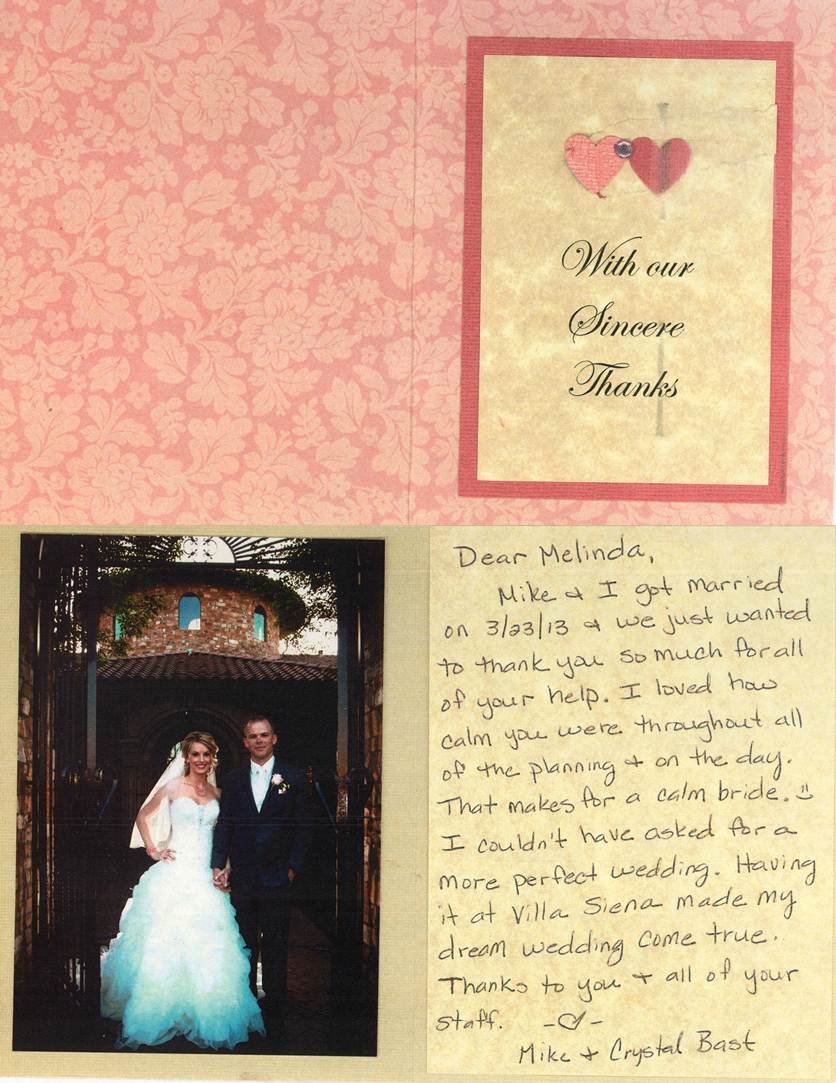 With our
Sincere
Thanks
Dear Melinda,
Mike & I got married
on 3/23/13 & we just wanted
to thank you so much for all
of your help. I loved how
calm you were throughout all
of the planning & on the day.
That makes for a calm bride. :)
I couldn't have asked for a
more perfect wedding. Having
it at Villa Siena made my
dream wedding come true.
Thanks to you & all of your
staff. -♡-
Mike & Crystal Bast